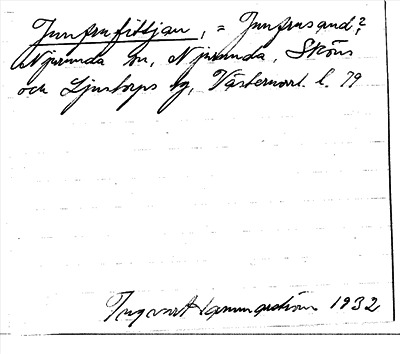 Junfrufittjan, = Junfrusand?
Njurunda sn, Njurunda, Sköns
och Ljustorps tg, Västernorrl. l. 79
Ingvart 1932